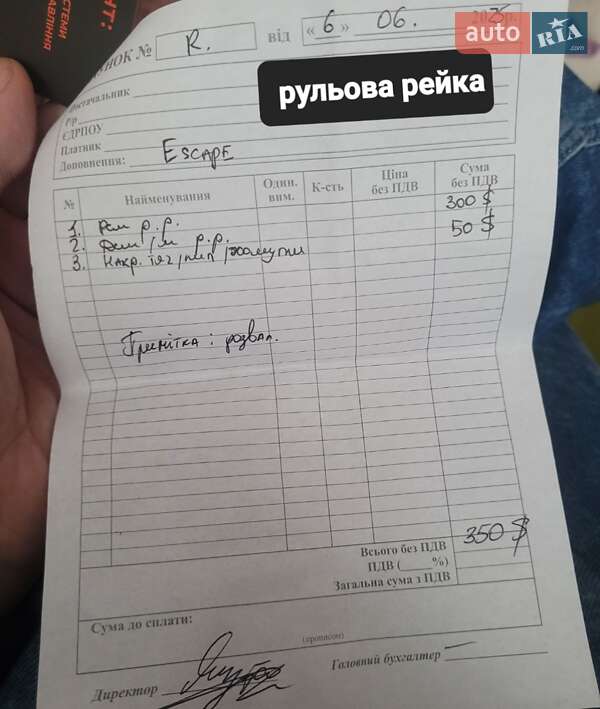 НТ:
СТЕМИ
АВЛІННЯ
auto RIA .com
УНОК № R. від «6» 06. 2025р.
рульова рейка
Постачальник
Р/р
ЄДРПОУ
Платник
Доповнення: Escape
№ Найменування Один. вим. К-сть Ціна без ПДВ Сума без ПДВ
1. Рем р.р. 300$
2. Дем/м р.р. 50$
3. Након. тяг/пил/хомути
Примітка: розвал.
Всього без ПДВ 350$
ПДВ (____%)
Загальна сума з ПДВ
Сума до сплати:
(прописом)
Директор Головний бухгалтер